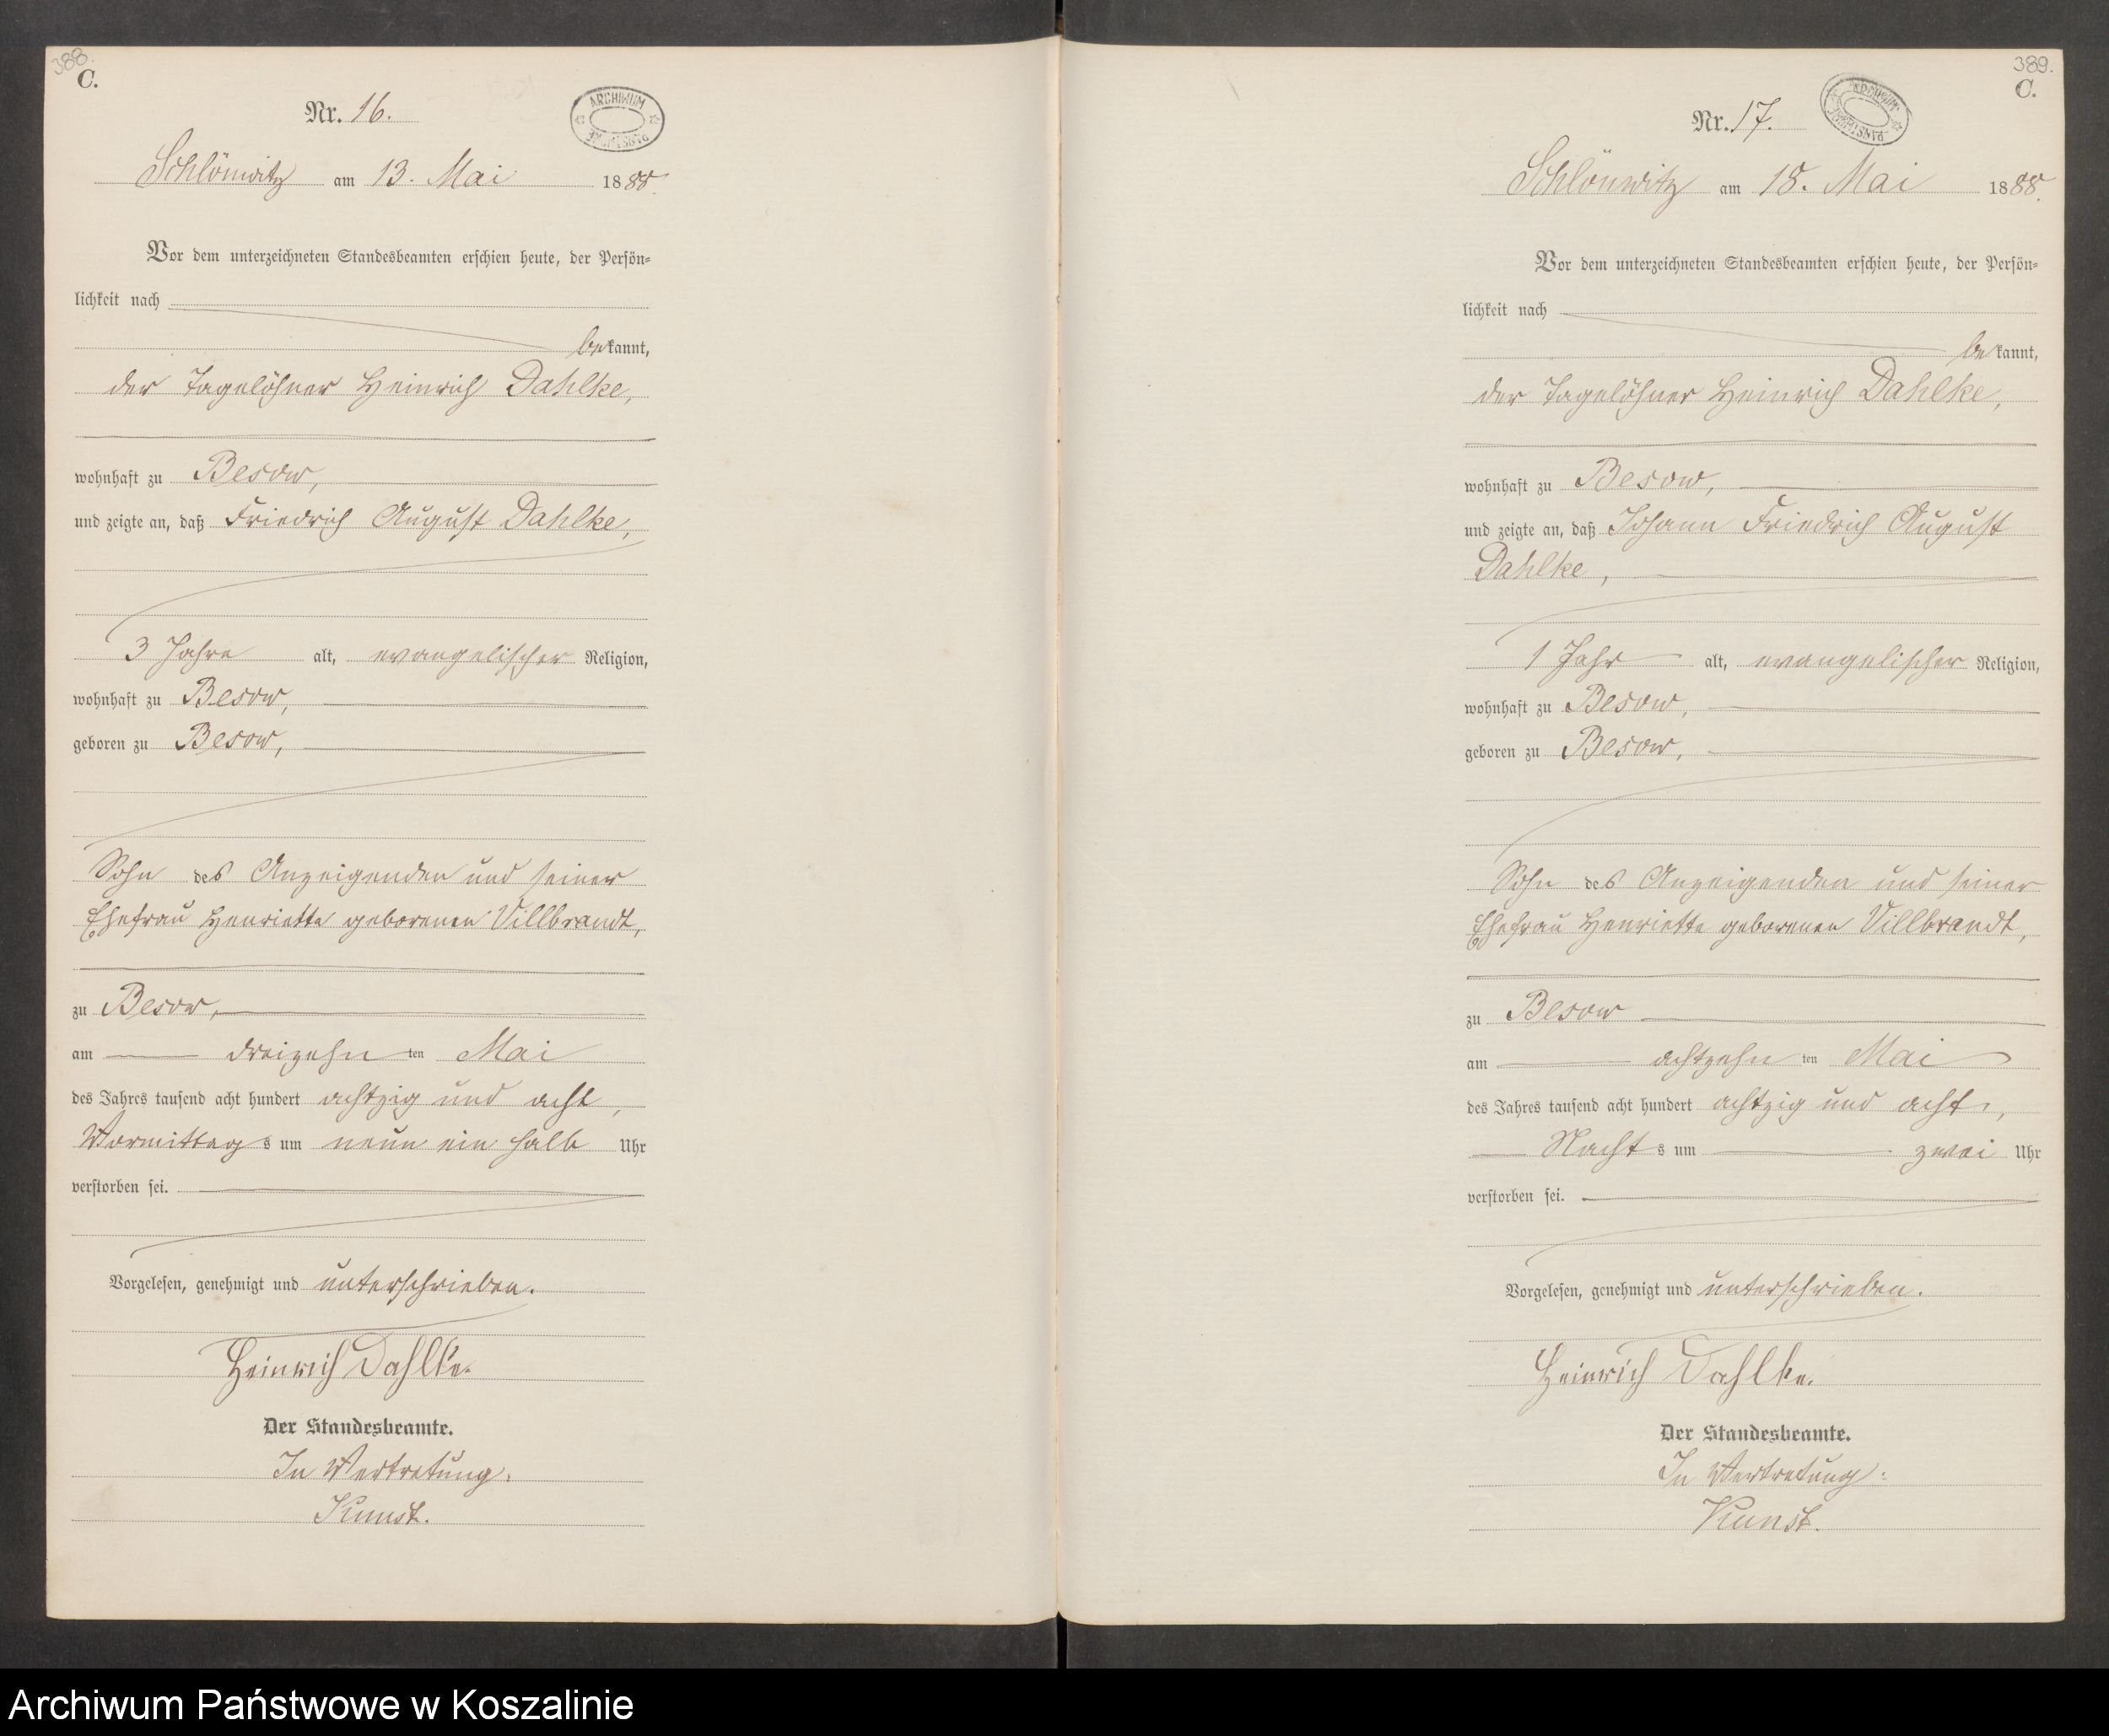 388.
C.
Nr. 16.
ARCHIWUM
Schlönwitz am 13. Mai 1888.
Vor dem unterzeichneten Standesbeamten erschien heute, der Persön-
lichkeit nach
bekannt,
der Tagelöhner Heinrich Dahlke,
wohnhaft zu Besow,
und zeigte an, daß Friedrich August Dahlke,
3 Jahre alt, evangelischer Religion,
wohnhaft zu Besow,
geboren zu Besow,
Sohn des Anzeigenden und seiner
Ehefrau Henriette geborenen Villbrandt,
zu Besow,
am dreizehn ten Mai
des Jahres tausend acht hundert achtzig und acht,
Vormittags um neun ein halb Uhr
verstorben sei.
Vorgelesen, genehmigt und unterschrieben.
Heinrich Dahlke.
Der Standesbeamte.
In Vertretung.
Kunst.
389.
C.
Nr. 17.
ARCHIWUM
Schlönwitz am 18. Mai 1888.
Vor dem unterzeichneten Standesbeamten erschien heute, der Persön-
lichkeit nach
bekannt,
der Tagelöhner Heinrich Dahlke,
wohnhaft zu Besow,
und zeigte an, daß Johann Friedrich August
Dahlke,
1 Jahr alt, evangelischer Religion,
wohnhaft zu Besow,
geboren zu Besow,
Sohn des Anzeigenden und seiner
Ehefrau Henriette geborenen Villbrandt,
zu Besow
am achtzehn ten Mai
des Jahres tausend acht hundert achtzig und acht,
Nachts um zwei Uhr
verstorben sei.
Vorgelesen, genehmigt und unterschrieben.
Heinrich Dahlke.
Der Standesbeamte.
In Vertretung:
Kunst.
Archiwum Państwowe w Koszalinie